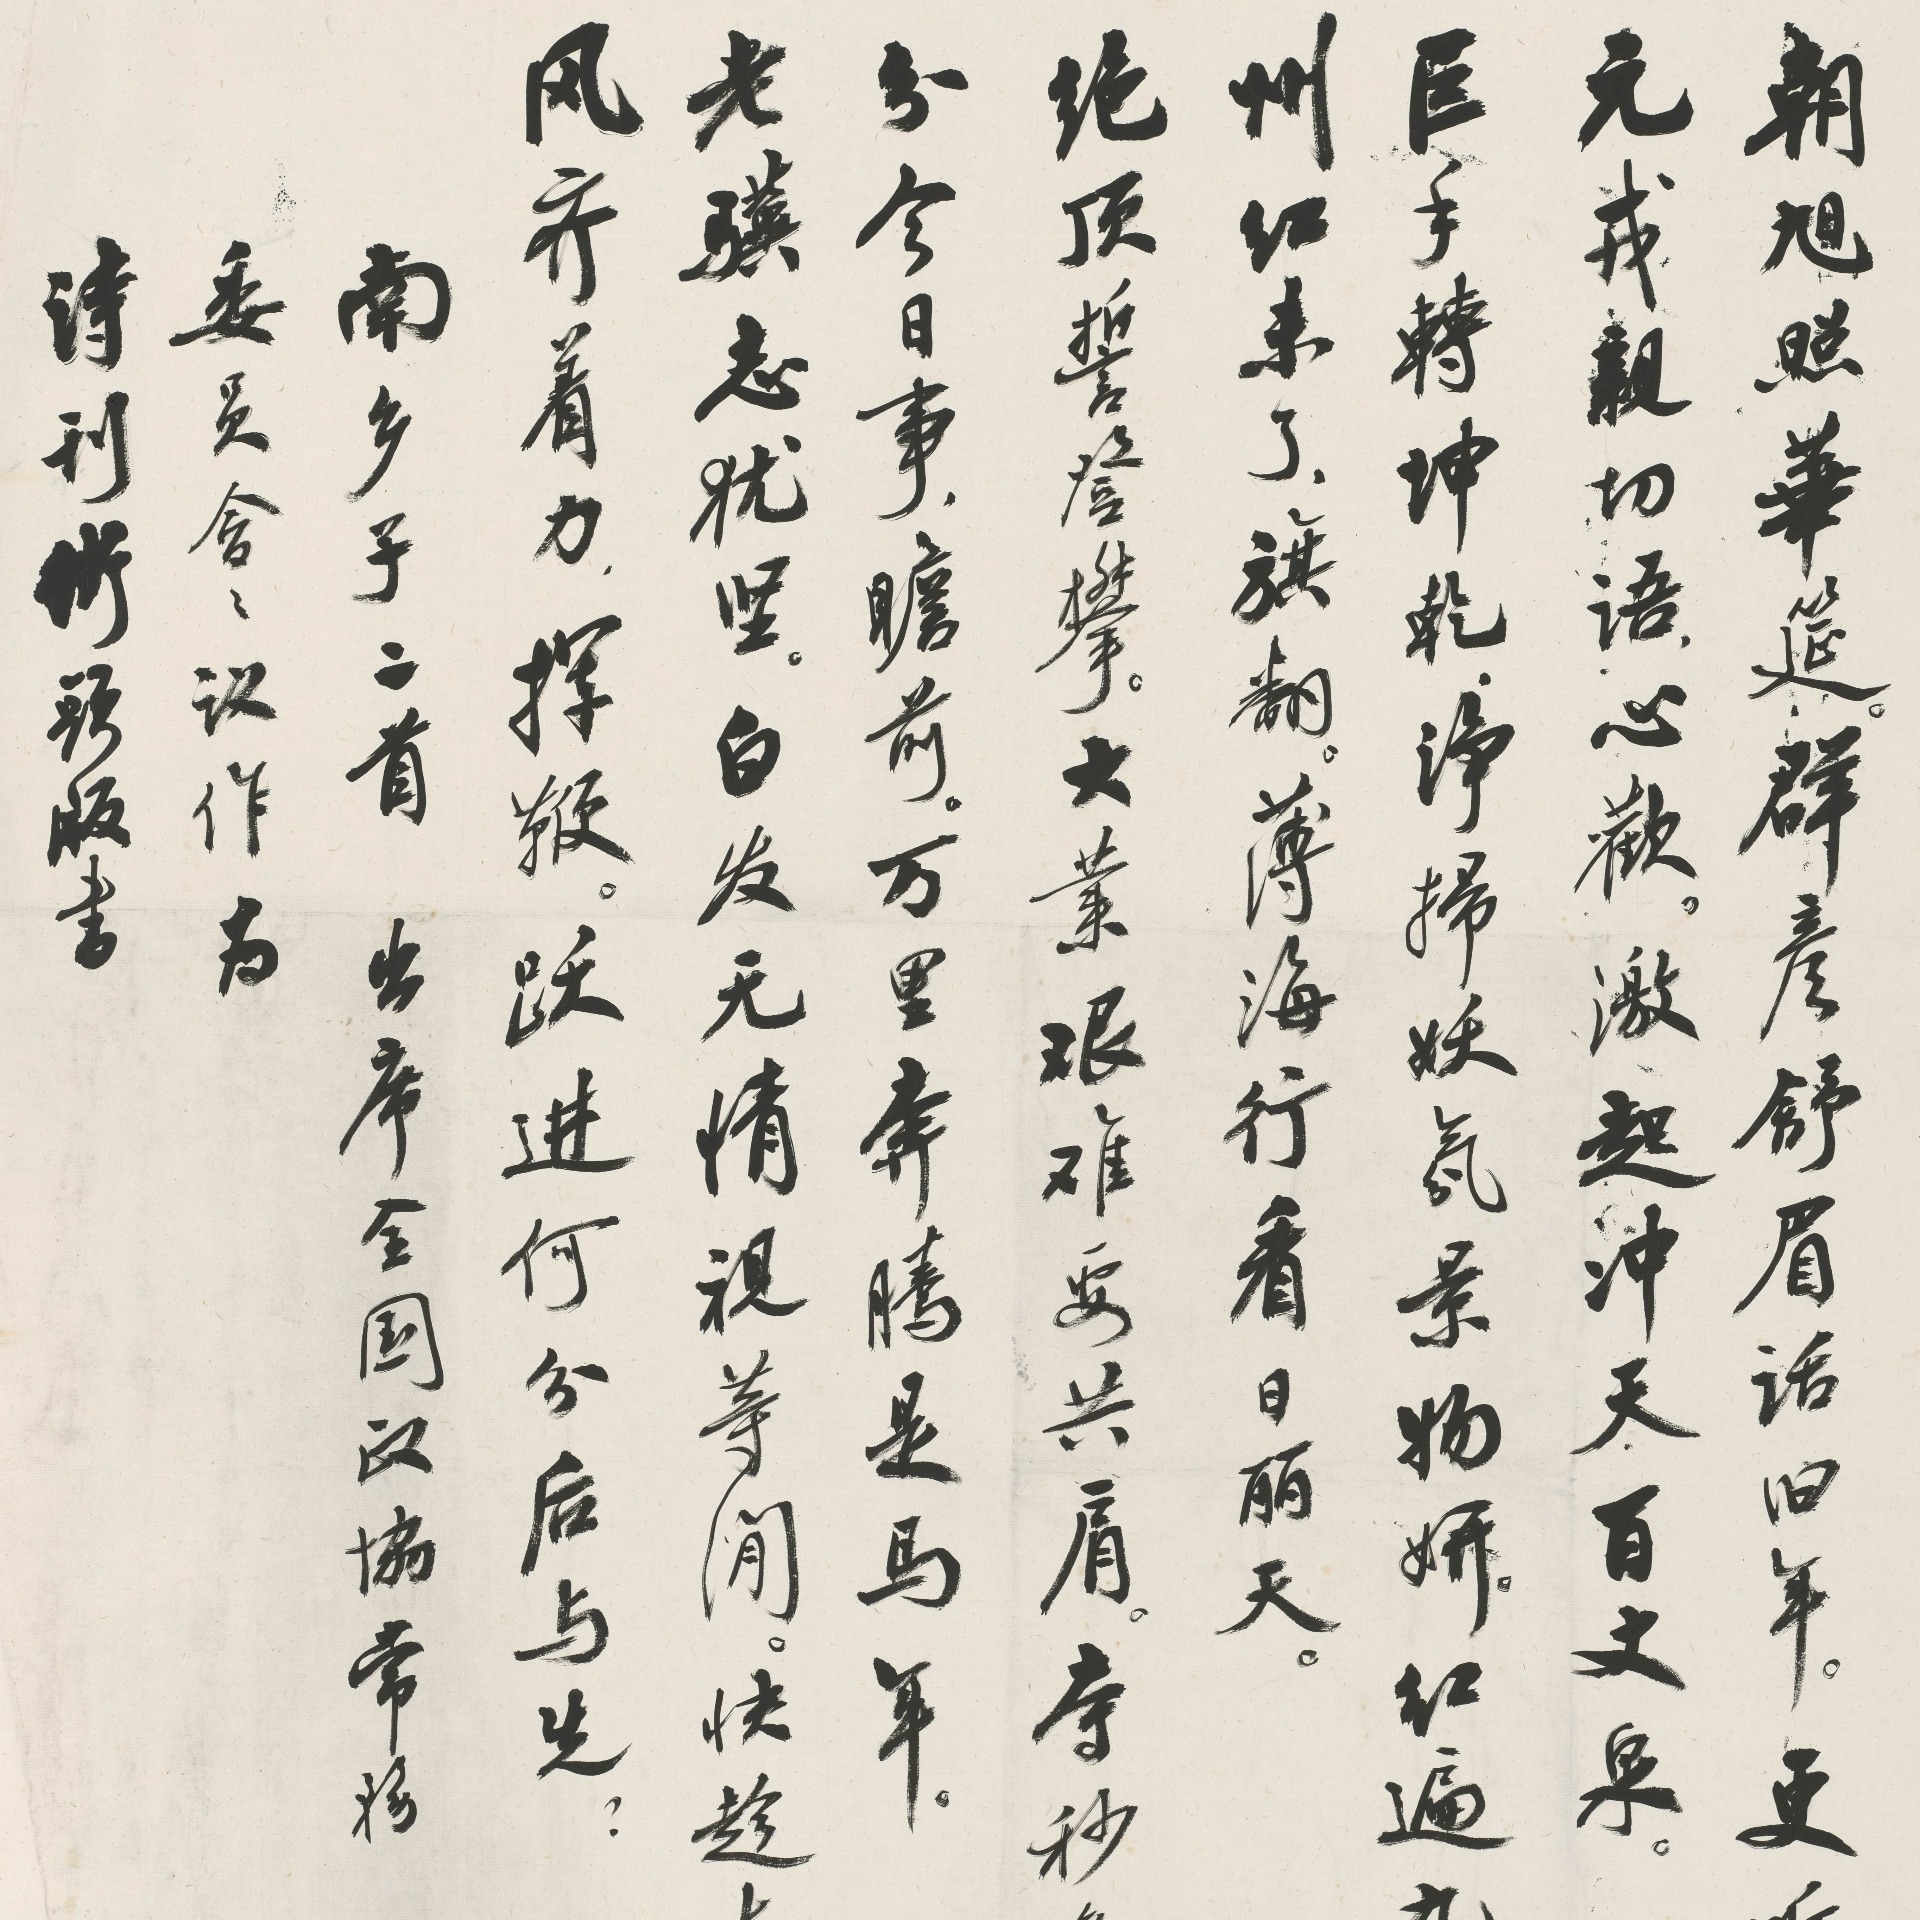 朝旭照華筵。群彦舒眉话旧年。更
元戎親切语，心歡。激起冲天百丈泉。
巨手轉坤乾，淨掃妖氛景物妍。红遍九
州红未了，旗翻。薄海行看日丽天。
绝顶誓登攀。大业艰难要共肩。夺秒
分今日事，瞻前。万里奔腾是马年。
老骥志犹坚。白发无情视等闲。快趁
风齐着力，挥鞭。跃进何分后与先！
南乡子二首 出席全国政協常務
委员会会议作为
诗刊術頭版書